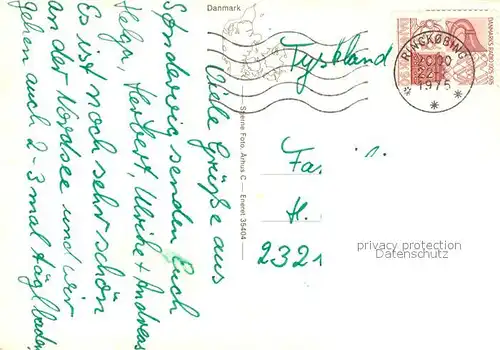 Danmark
Viele Grüße aus
Søndervig senden Euch
Helga, Herbert, Ulrike + Andreas
Es ist noch sehr schön
an der Nordsee und wir
gehen auch 2-3 mal tägl baden.
Stenne Foto, Århus C — Eneret 35404
Tyskland
RINGKØBING
1975
Fa.
H.
2321
privacy protection
Datenschutz